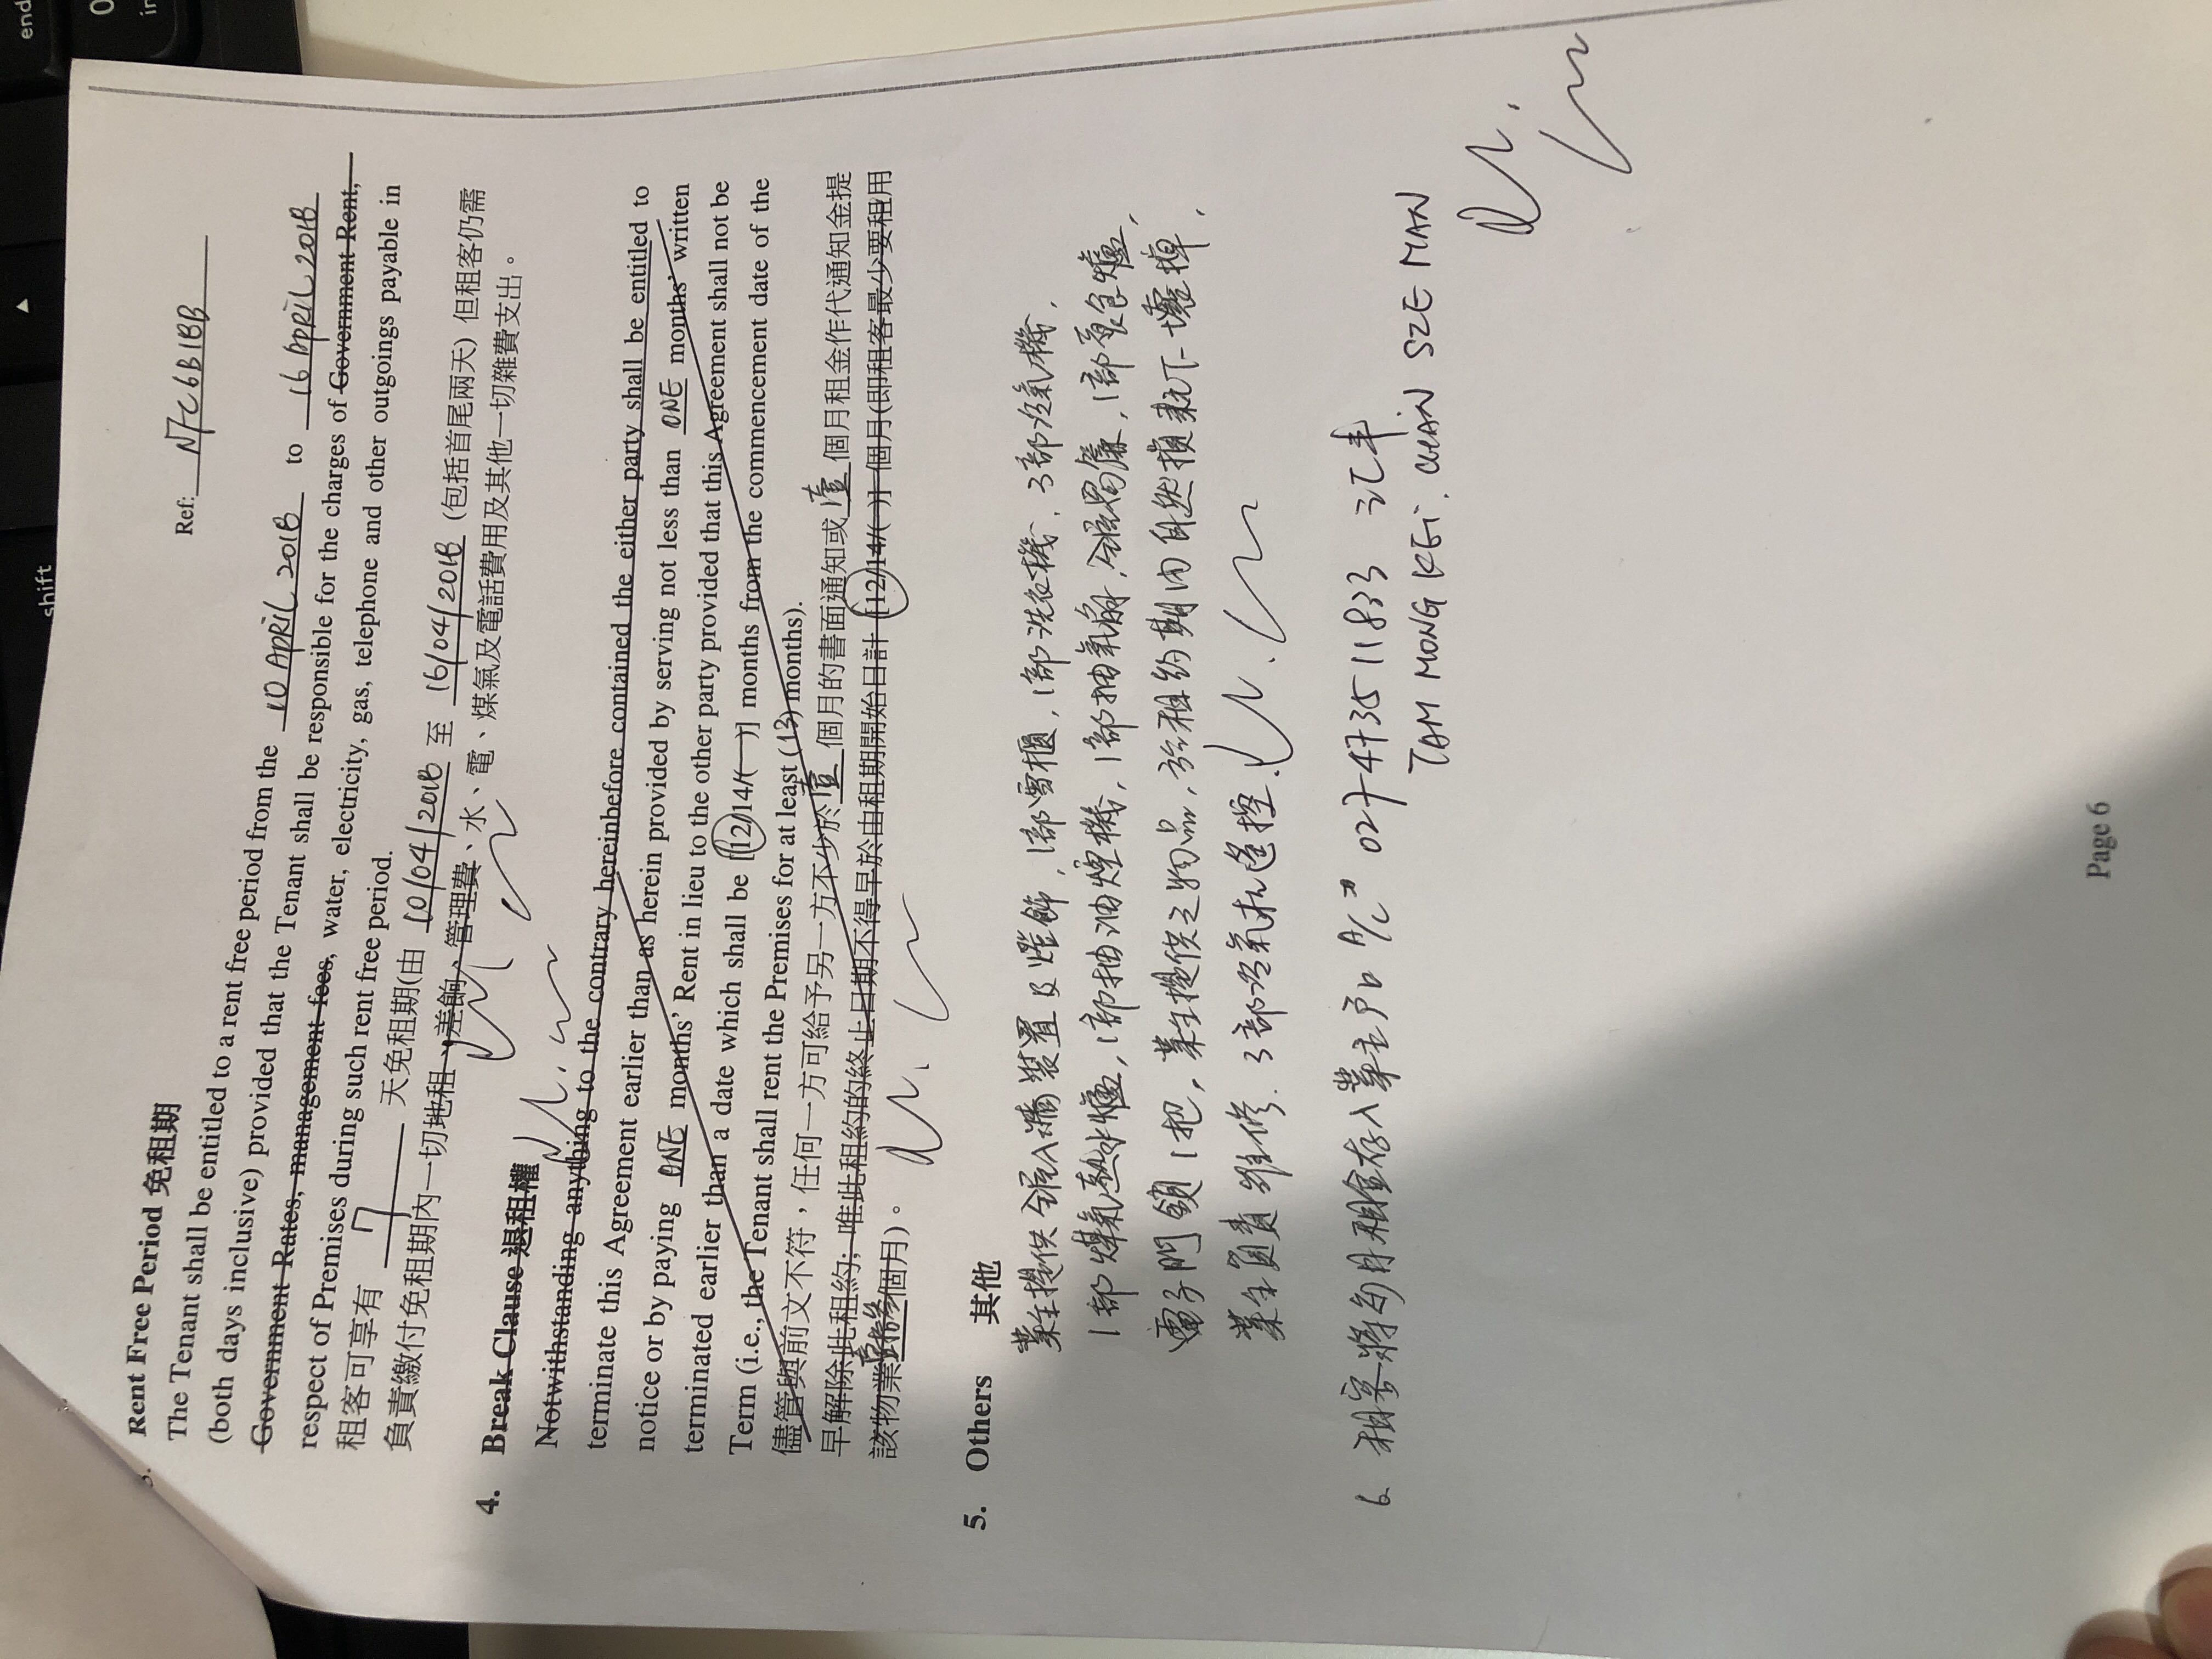 Ref: NFC6B1BB
3. Rent Free Period 免租期
The Tenant shall be entitled to a rent free period from the 10 April 2018 to 16 April 2018
(both days inclusive) provided that the Tenant shall be responsible for the charges of Government Rent,
Government Rates, management fees, water, electricity, gas, telephone and other outgoings payable in
respect of Premises during such rent free period.
租客可享有 7 天免租期(由 10/04/2018 至 16/04/2018 (包括首尾兩天) 但租客仍需
負責繳付免租期內一切地租、差餉、管理費、水、電、煤氣及電話費用及其他一切雜費支出。
4. Break Clause 退租權
Notwithstanding anything to the contrary hereinbefore contained the either party shall be entitled to
terminate this Agreement earlier than as herein provided by serving not less than ONE months' written
notice or by paying ONE months' Rent in lieu to the other party provided that this Agreement shall not be
terminated earlier than a date which shall be [12/14/( )] months from the commencement date of the
Term (i.e., the Tenant shall rent the Premises for at least (13) months).
儘管與前文不符，任何一方可給予另一方不少於 壹 個月的書面通知或 壹 個月租金作代通知金提
早解除此租約; 唯此租約的終止日期不得早於由租期開始日計 [12/14/( )] 個月(即租客最少要租用
該物業 個月)。
5. Others 其他
業主提供全屋入牆裝置及燈飾，1部雪櫃，1部洗衣機，3部冷氣機，
1部煤氣熱水爐，1部抽油煙機，1部抽氣扇，全屋窗簾，1部煮食爐，
電子門鎖1把，業主提供之物品，於租約期內自然損耗下壞掉，
業主負責維修。3部冷氣机遙控。
6. 租客將每月租金存入業主戶口 A/C# 027-473511833 汇丰
TAM MONG KEI, CHAN SZE MAN
Page 6
end
shift